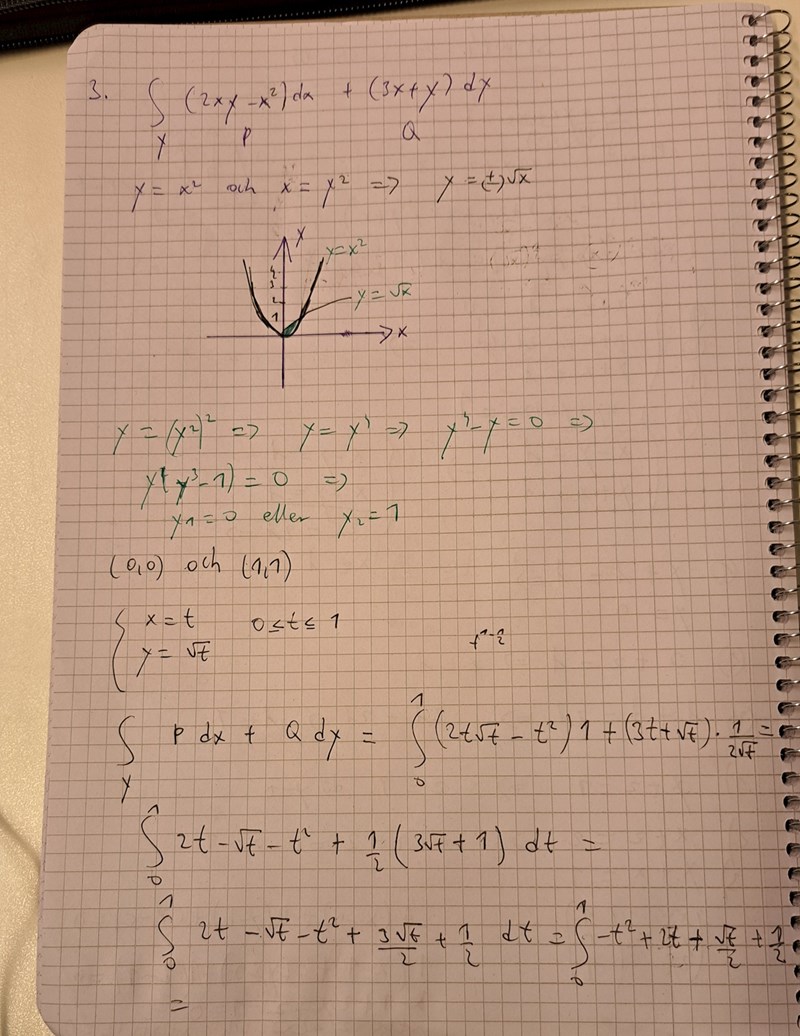 3. ∫ (2xy - x²) dx + (3x + y) dy
γ P Q
y = x² och x = y² => y = (±)√x
y
y=x²
4
3
2
y = √x
1
x
y = (y²)² => y = y⁴ => y⁴ - y = 0 =>
y(y³ - 1) = 0 =>
y₁ = 0 eller y₂ = 1
(0,0) och (1,1)
{ x = t 0 ≤ t ≤ 1
y = √t
∫γ P dx + Q dy = ∫₀¹ (2t√t - t²) 1 + (3t + √t) · 1/(2√t) =
∫₀¹ 2t - √t - t² + 1/2 (3√t + 1) dt =
∫₀¹ 2t - √t - t² + 3√t/2 + 1/2 dt = ∫₀¹ -t² + 2t + √t/2 + 1/2
=